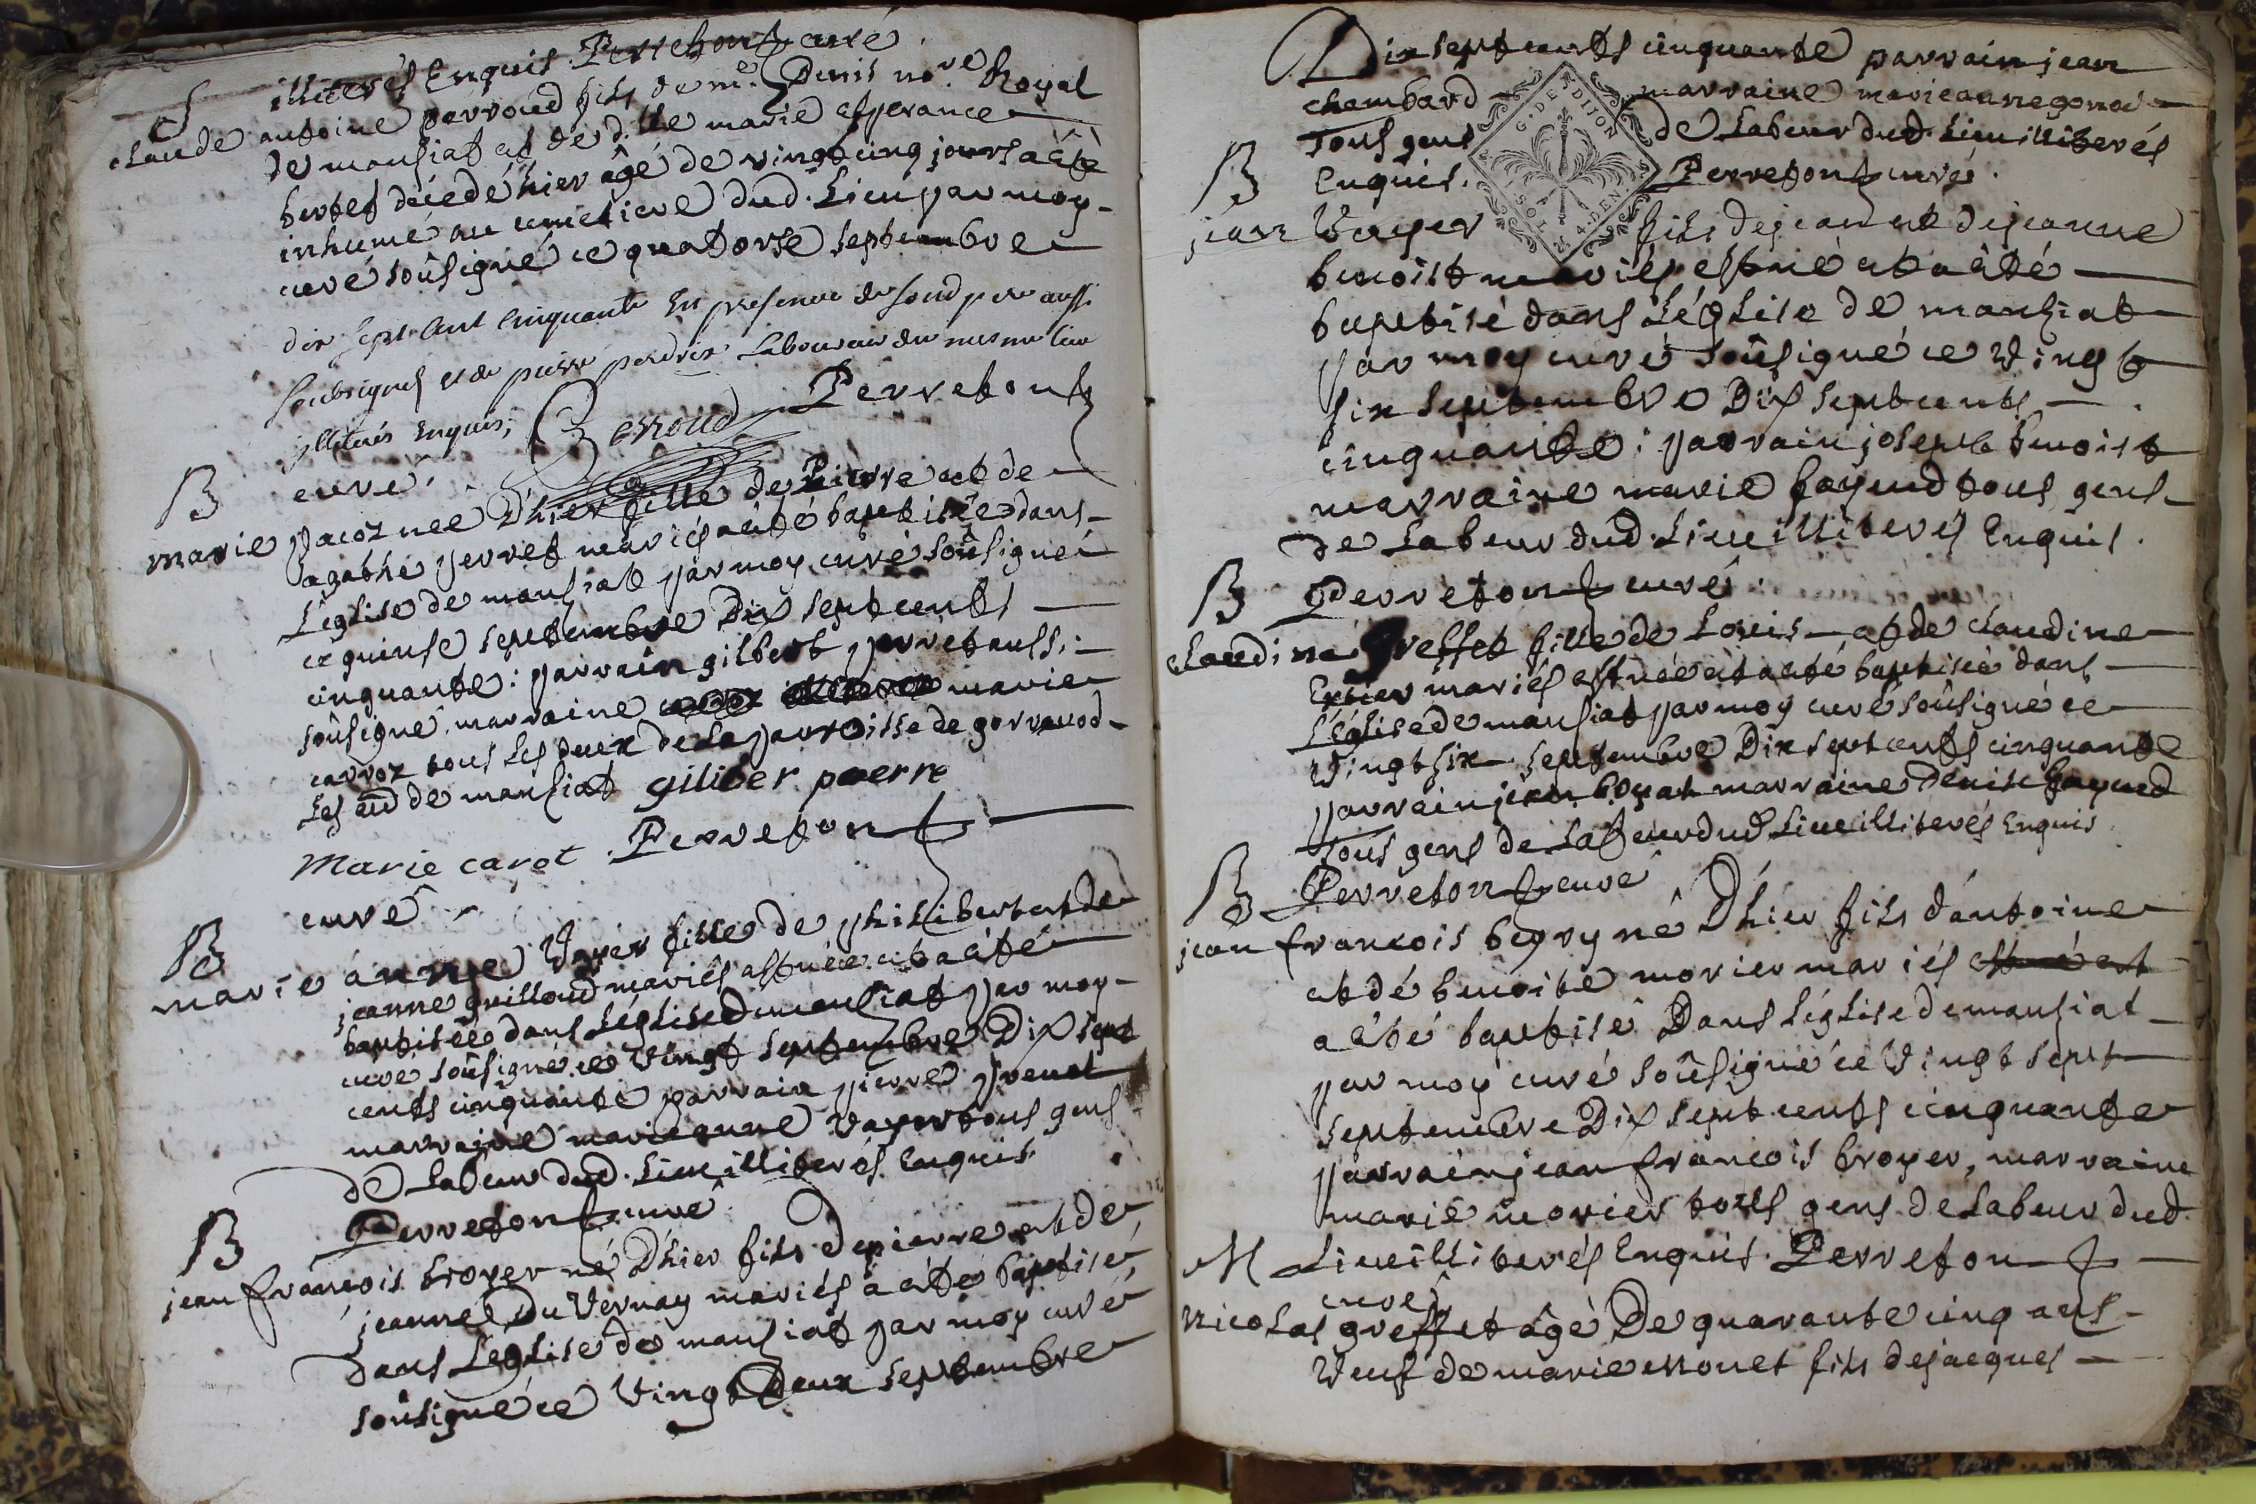 illiterés Enquis. Perretont curé.
S
claude antoine perroud fils de me. Denis nore Royal
de manziat et de dlle marie esperance
bertet décedé hier âgé de vingt cinq jours a êté
inhumé au cimetiere dud. Lieu par moy
curé soûsigné ce quatorse septembre
dix sept Cent Cinquante En presence du soud pere aussi
soubsignés et de pierre perdrix Laboureur du mesme lieu
illiterés enquis, Perroud Perretont
curé.
B
marie pacoz née D'hier fille de Pierre et de
agathe perret mariés a êté baptisée dans
L'église de manziat par moy curé soûsigné
ce quinse septembre Dix sept cents
cinquante : parrain gilbert perret aussi
soûsigné. marraine marie
carroz tous les deux de la parroisse de gorrevod
Les de manziat giliber paerre
Marie caret Perretont
curé
B
marie anne Vayer fille de philibert et de
jeanne guilloud mariés est née et a êté
baptisée dans L'église de manziat par moy
curé soûsigné ce vingt septembre Dix sept
cents cinquante parrain pierre prevet
marraine marieanne vayer tous gens
de Labeur dud. Lieu illiterés Enquis.
B
Perretont curé.
jean françois broyer né D'hier fils de pierre et de
jeanne Du Vernay mariés a êté baptisé
dans L'eglise de manziat par moy curé
soûsigné ce Vingt Deux septembre
Dix sept cents cinquante parrain jean
chambard marraine marieanne
tous gens de Labeur dud. Lieu illiterés
Enquis. Perretont curé.
G. DE DIJON
SOL 4. DEN.
B
jean Vayer fils de jean et de jeanne
benoist mariés est né et a êté
baptisé dans L'église de manziat
par moy curé soûsigné ce Vingt
six septembre Dix sept cents
cinquante : parrain joseph benoist
marraine marie fayend tous gens
de Labeur dud. Lieu illiterés Enquis.
B
Perretont curé.
claudine greffet fille de Louis et de claudine
mariés est née et a êté baptisée dans
L'église de manziat par moy curé soûsigné ce
Vingt six septembre Dix sept cents cinquante
parrain jean boyat marraine Denise fayend
tous gens de Labeur dud Lieu illiterés Enquis
B
Perretont curé
jean françois begry né D'hier fils d'antoine
et de benoite morier mariés est né et
a êté baptisé Dans L'église de manziat
par moy curé soûsigné ce Vingt sept
septembre Dix sept cents cinquante
parrain jean françois broyer, marraine
marie morier tous gens de Labeur dud
M
Lieu illiterés Enquis. Perretont
curé
nicolas greffet âgé De quarante cinq ans
Veuf de marie monet fils de jacques